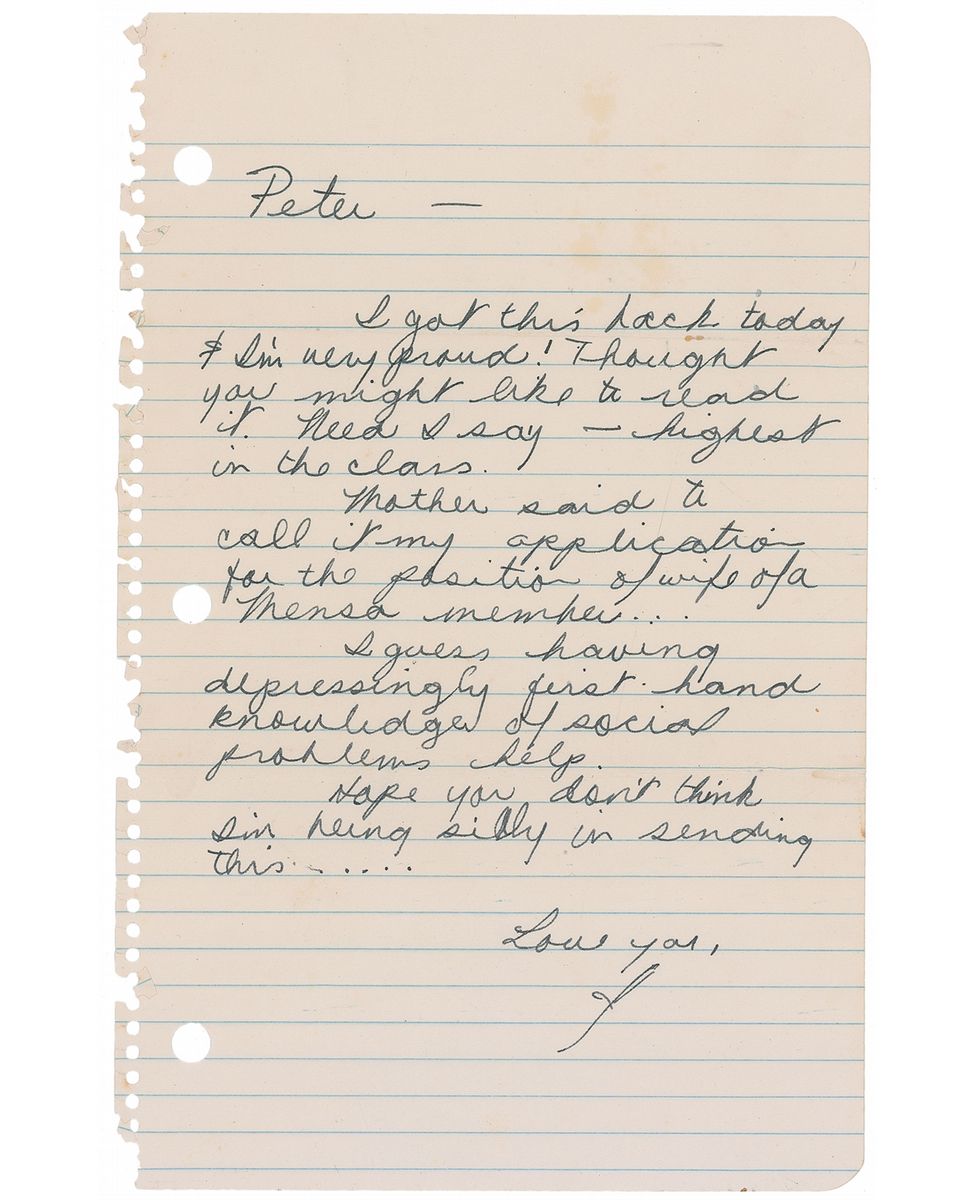 Peter —
I got this back today
& I'm very proud! Thought
you might like to read
it. Need I say — highest
in the class.
Mother said to
call it my application
for the position of wife of a
Mensa member...
I guess having
depressingly first-hand
knowledge of social
problems help.
Hope you don't think
I'm being silly in sending
this......
Love you,